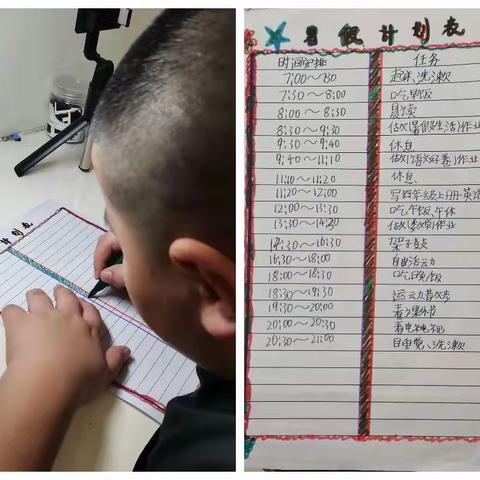 计划表
暑假计划表
时间安排 任务
7:00～7:30 起床、洗漱
7:30～8:00 吃早饭
8:00～8:30 晨读
8:30～9:30 做《暑假生活》作业
9:30～9:40 休息
9:40～11:10 做《语文好卷》作业
11:10～11:20 休息
11:20～12:00 写四年级上册英语
12:00～13:30 吃午饭、午休
13:30～14:30 做《数学》作业
14:30～16:30 架子鼓
16:30～18:00 自由活动
18:00～18:30 吃晚饭
18:30～19:30 运动散步
19:30～20:00 看课外书
20:00～20:30 看电视
20:30～21:00 睡觉、洗漱